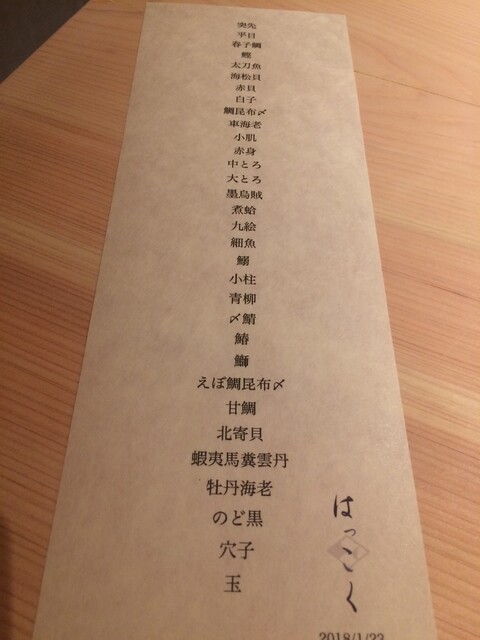 突先
平目
春子鯛
鰹
太刀魚
海松貝
赤貝
白子
鯛昆布〆
車海老
小肌
赤身
中とろ
大とろ
墨烏賊
煮蛤
九絵
細魚
鰯
小柱
青柳
〆鯖
鰆
鰤
えぼ鯛昆布〆
甘鯛
北寄貝
蝦夷馬糞雲丹
牡丹海老
のど黒
穴子
玉
はっこく
2018/1/23